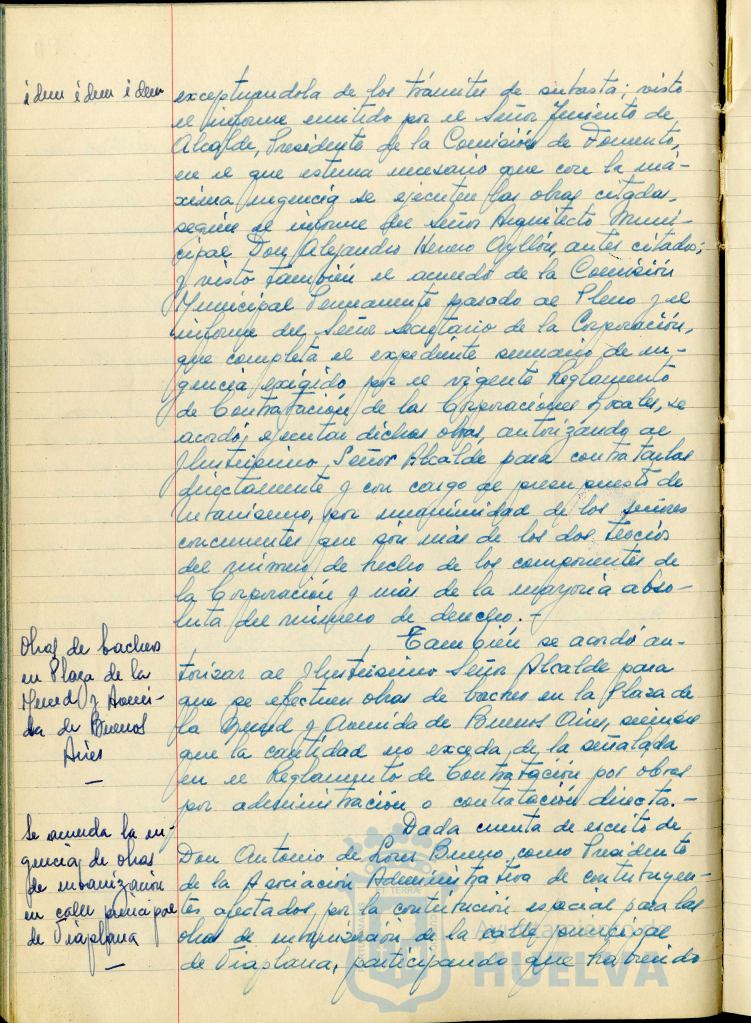 idem idem idem
exceptuandola de los trámites de subasta; visto
el informe emitido por el Señor Teniente de
Alcalde, Presidente de la Comisión de Fomento,
en el que estima necesario que con la má-
xima urgencia se ejecuten las obras citadas,
según el informe del Señor Arquitecto Muni-
cipal Don Alejandro Herrero Ayllón, antes citados;
y visto también el acuerdo de la Comisión
Municipal Permanente pasado al Pleno y el
informe del Señor Secretario de la Corporación,
que completa el expediente sumario de ur-
gencia exigido por el vigente Reglamento
de Contratación de las Corporaciones Locales, se
acordó, ejecutar dichas obras, autorizando al
Ilustrisimo Señor Alcalde para contratarlas
directamente y con cargo al presupuesto de
Urbanismo, por unanimidad de los señores
concurrentes que son más de los dos tercios
del número de hecho de los componentes de
la Corporación y más de la mayoría abso-
luta del número de derecho.-
Obras de bacheo
en Plaza de la
Merced y Aveni-
da de Buenos
Aires
También se acordó au-
torizar al Ilustrisimo Señor Alcalde para
que se efectuen obras de bacheo en la Plaza de
la Merced y Avenida de Buenos Aires, siempre
que la cantidad no exceda de la señalada
en el Reglamento de Contratación por obras
por administración o contratación directa.-
Se acuerda la ur-
gencia de obras
de urbanización
en calle principal
de Viaplana
Dada cuenta de escrito de
Don Antonio de Bueno, como Presidente
de la Asociación Administrativa de contribuyen-
tes afectados por la contribución especial para las
obras de urbanización de la calle principal
de Viaplana, participando que habiendo
HUELVA